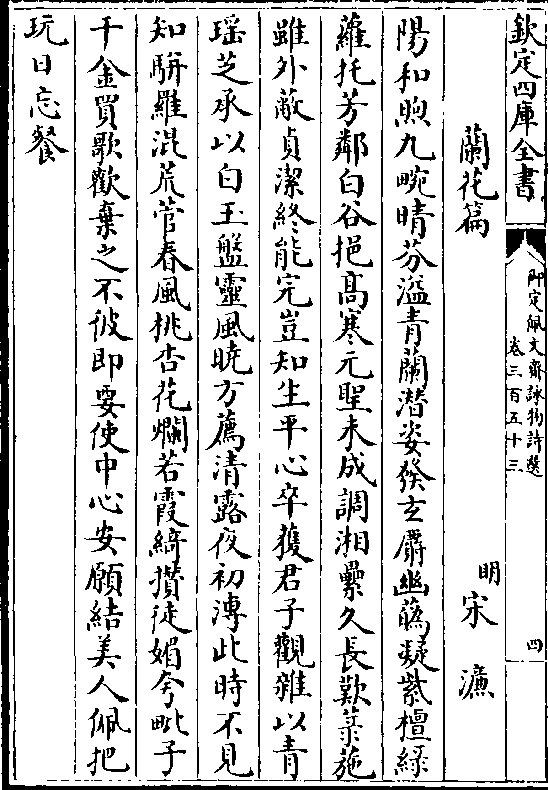 欽定四庫全書
御定佩文齋詠物詩選
卷三百五十三
四
蘭花篇
明 宋濂
陽和煦九畹晴芬溢青蘭潜姿發玄麝幽藹凝紫檀緑
蘿托芳鄰白谷挹髙寒元聖未成調湘纍久長歎菉葹
雖外蔽貞潔終能完豈知生平心卒獲君子觀雜以青
瑶芝承以白玉盤靈風曉方薦清露夜初漙此時不見
知駢羅混荒菅春風桃杏花爛若霞綺攅徒媚夸毗子
千金買歌歡棄之不彼即要使中心安願結美人佩把
玩日忘餐